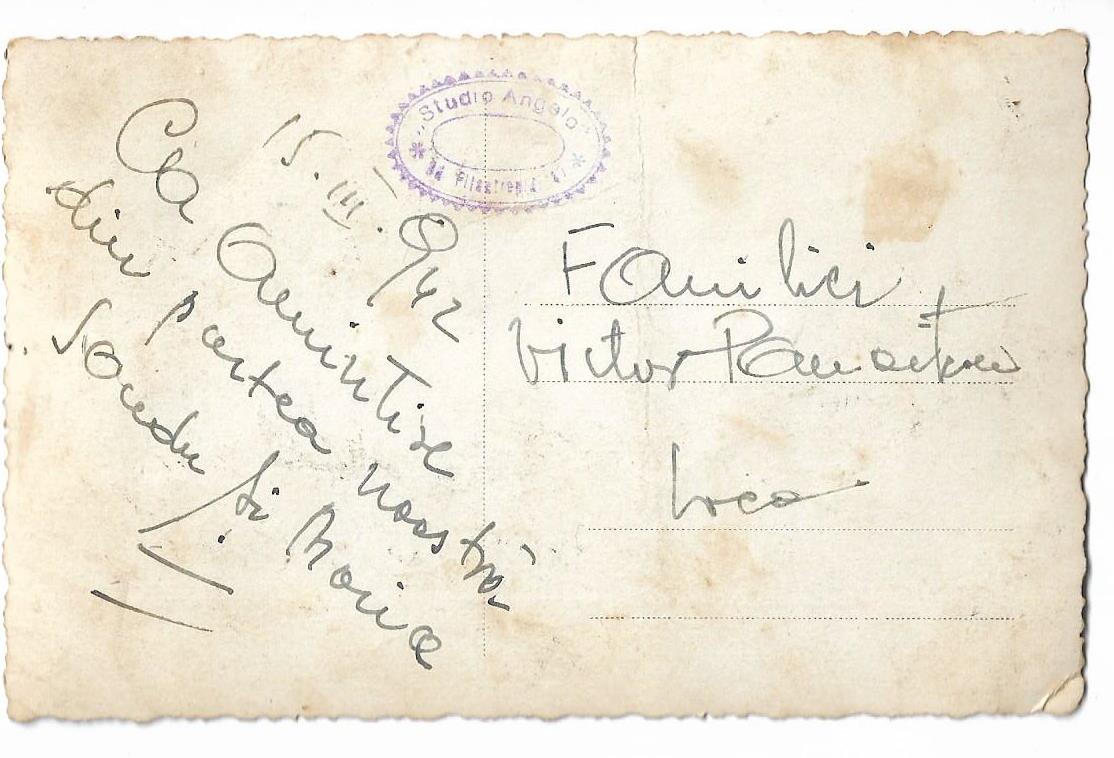 "Studio Angelo"
Bd Filantropia
15. III. 942
Ca Amintire
din partea noastră
Sandu și Maria
Familiei
Victor
Loco